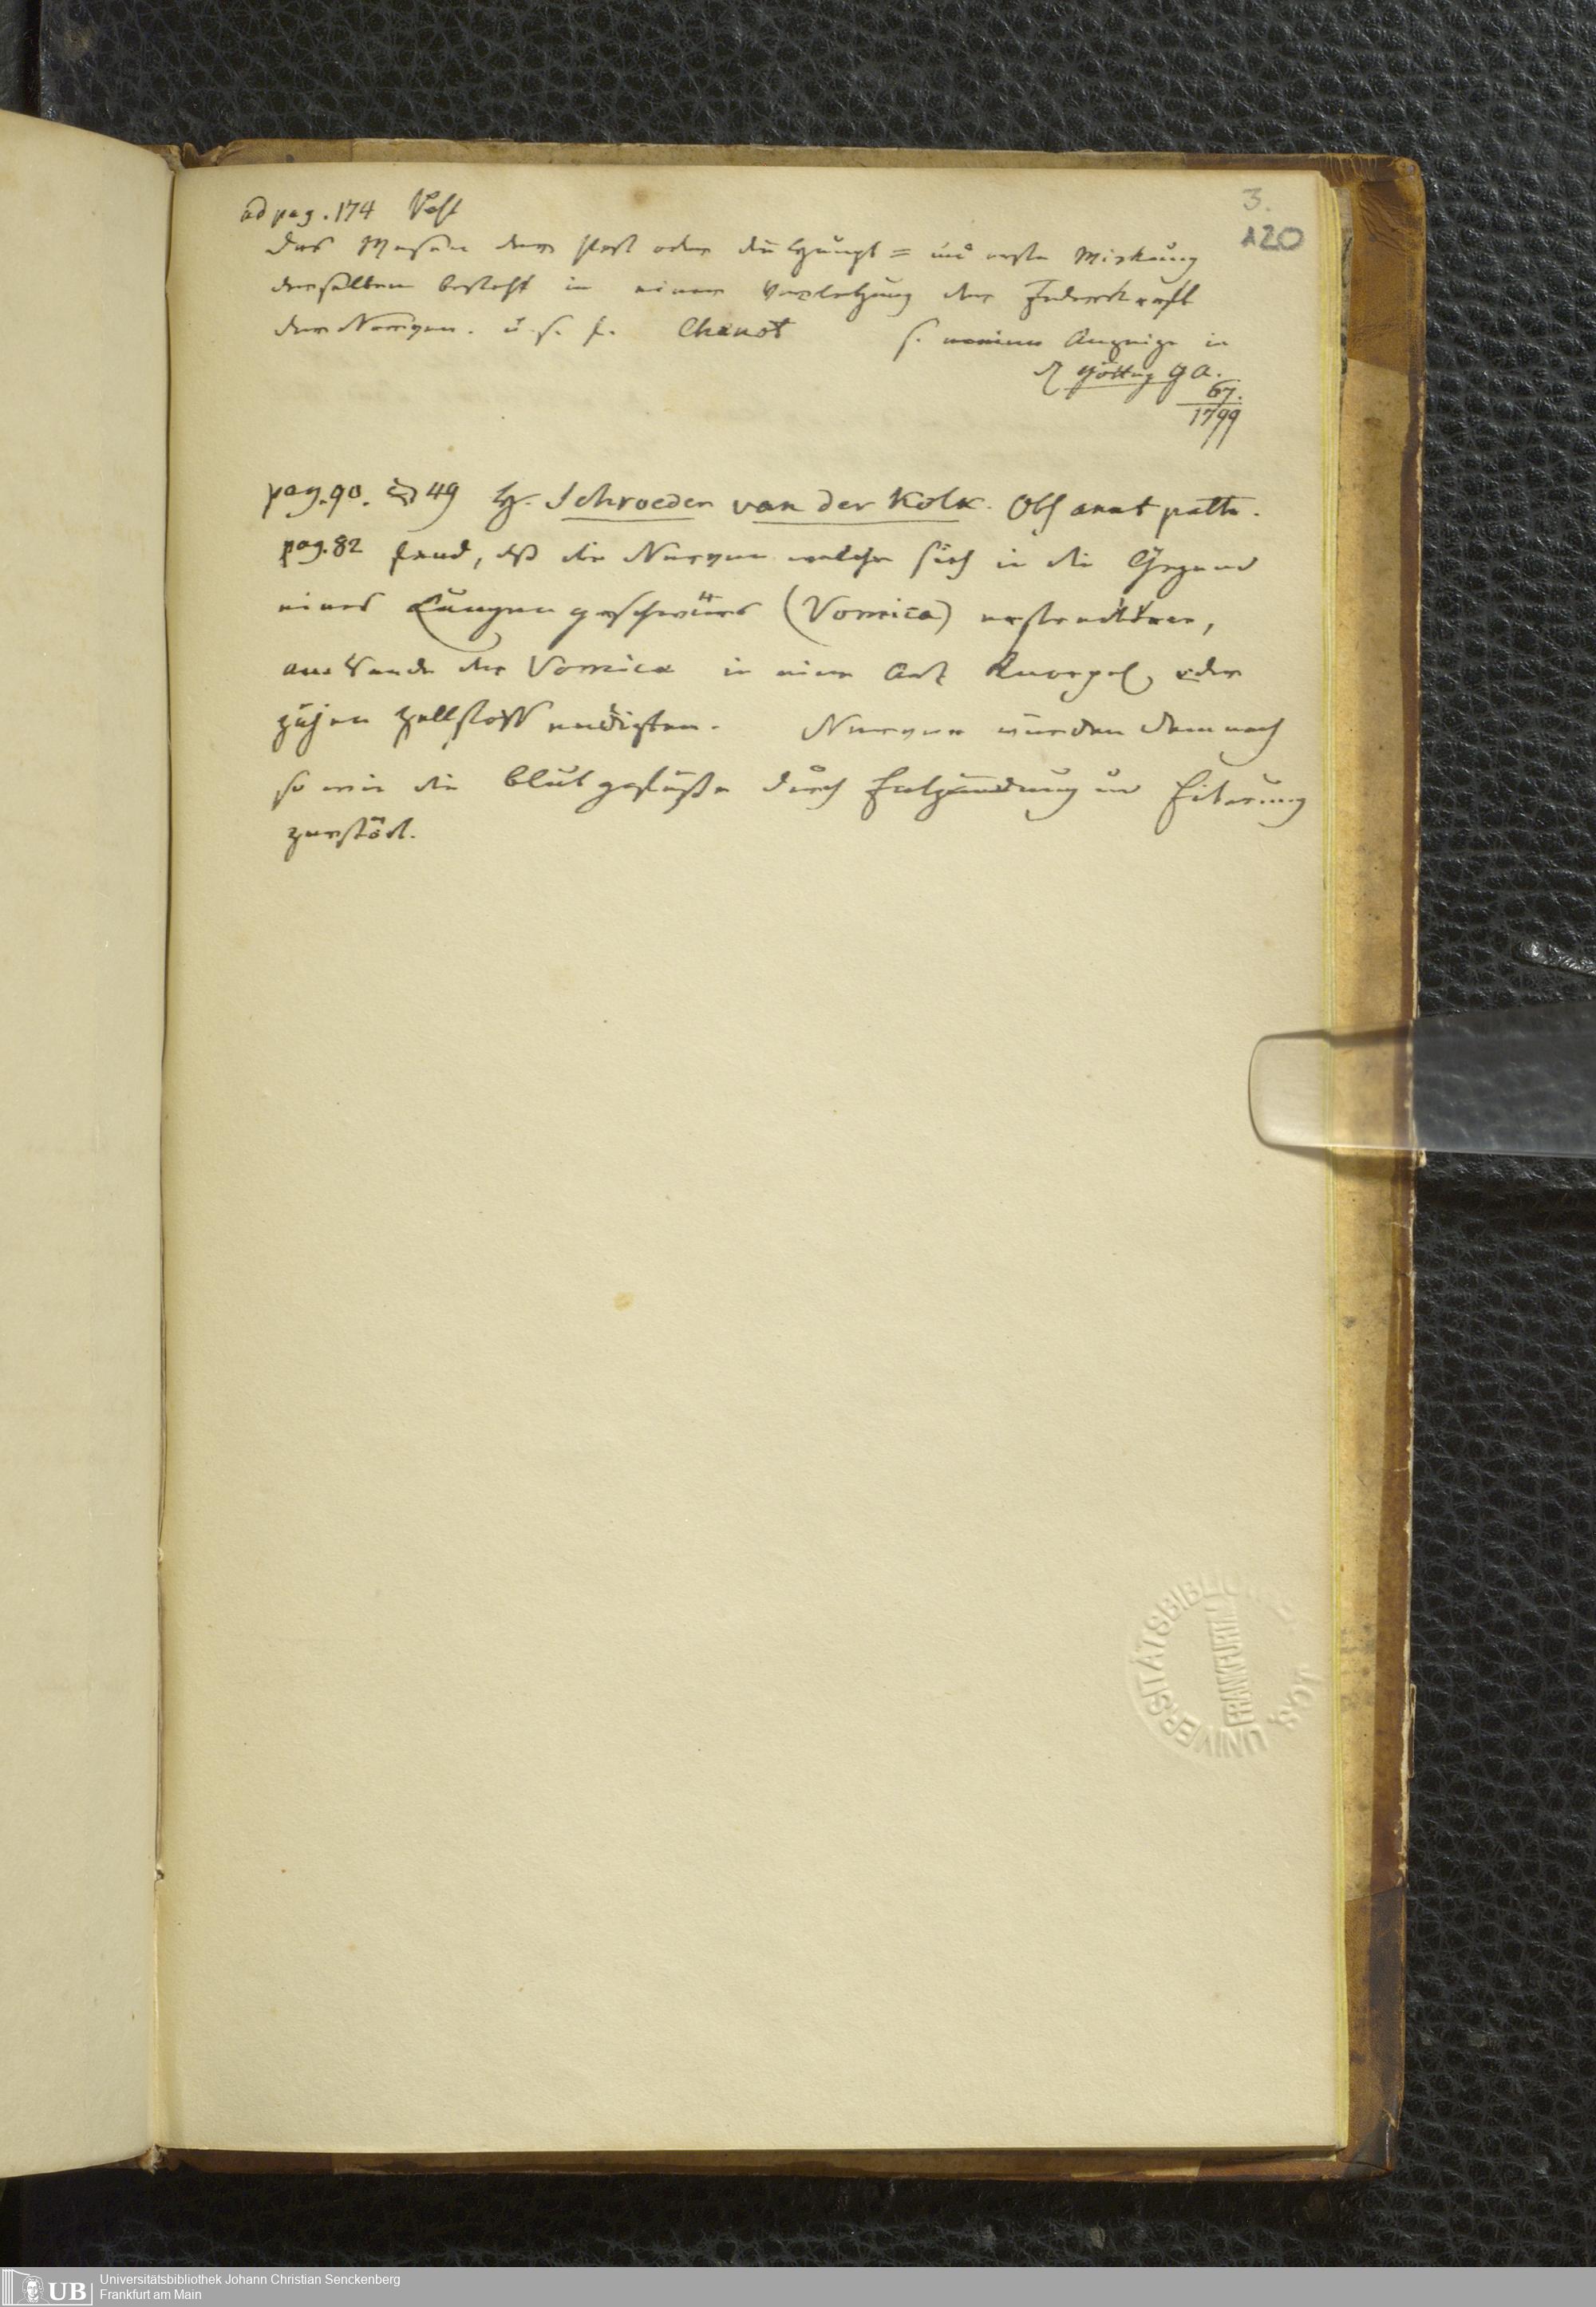 ad pag. 174 Pest
3.
120
Das Wesen der Pest oder die Haupt = und erste Wirkung
derselben besteht in einer Verletzung der Federkraft
der Nerven. u. s. f. Chenot s. meine Anzeige in
d Götting g a.
67.
1799
pag. 90. § 49 H. Schroeder van der Kolk. Obs anat path.
pag. 82 fand, dß die Nerven welche sich in die Gegend
eines Lungengeschwürs (Vomica) erstreckten,
am Rande der Vomica in eine Art Knorpel, oder
zähen Zellstoff endigten. Nerven würden demnach
so wie die Blutgefäße durch Entzündung und Eiterung
zerstört.
UNIVERSITÄTSBIBLIO
FRANKFURT
UB
Universitätsbibliothek Johann Christian Senckenberg
Frankfurt am Main